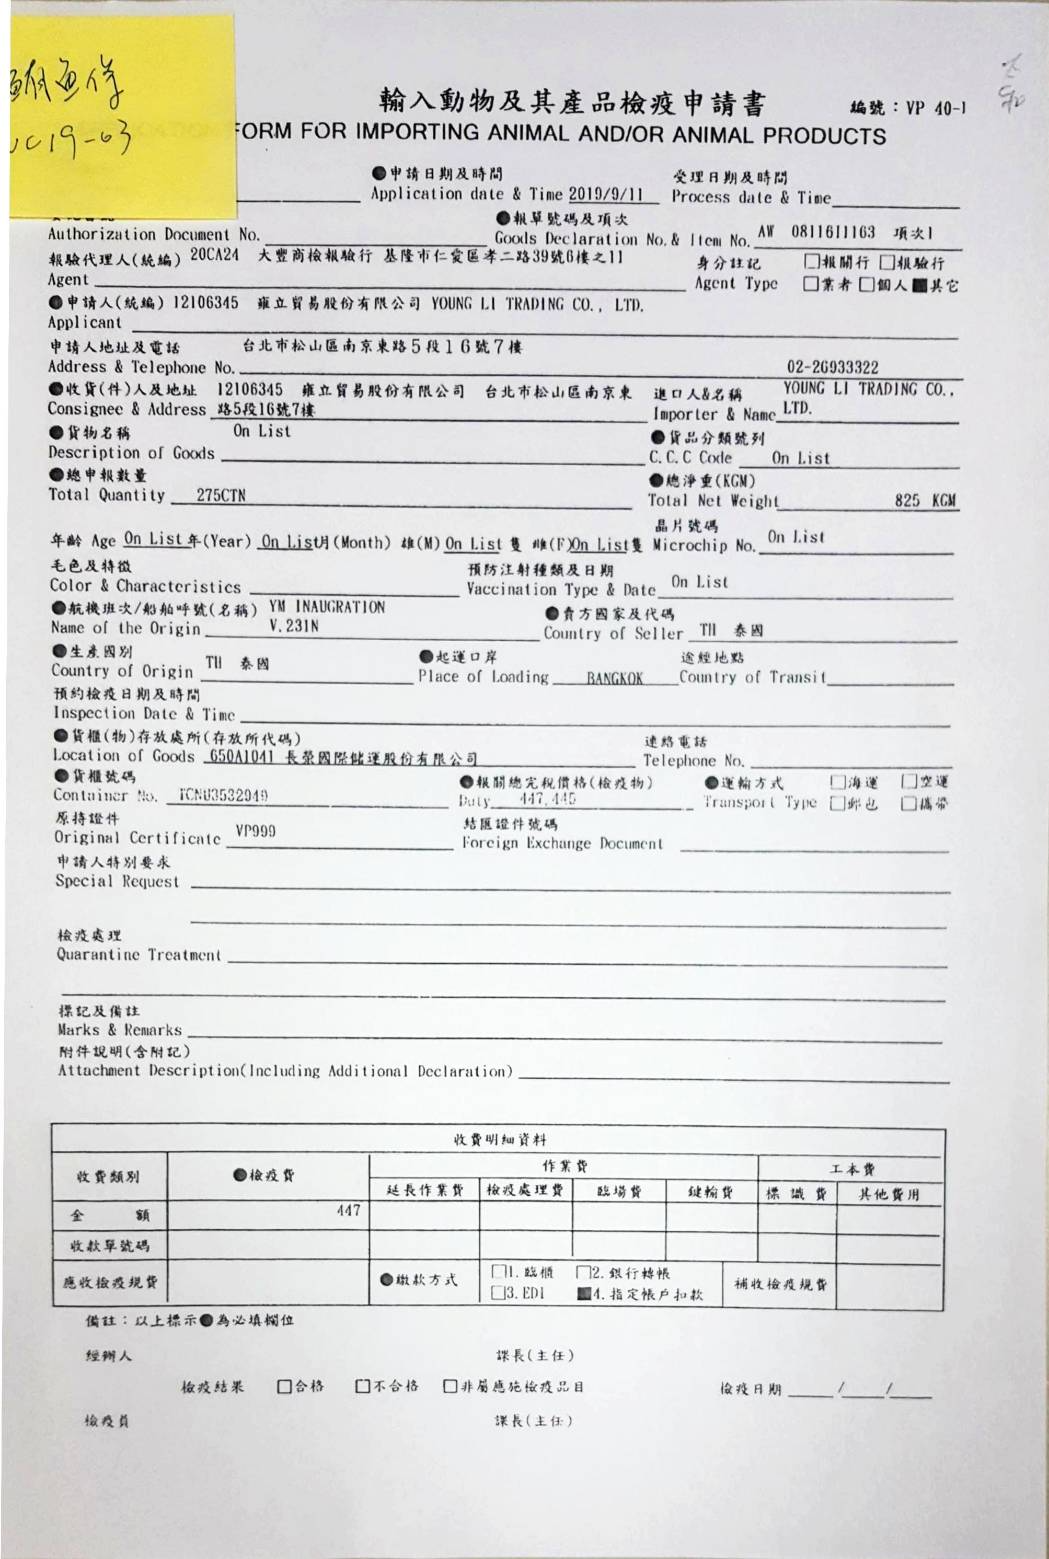 輸入動物及其產品檢疫申請書 編號：VP 40-1
FORM FOR IMPORTING ANIMAL AND/OR ANIMAL PRODUCTS
19-03
●申請日期及時間 受理日期及時間
Application date & Time 2019/9/11 Process date & Time
●報單號碼及項次
Authorization Document No. Goods Declaration No.& Item No. AW 0811611163 項次1
報驗代理人(統編) 20CA24 大豐商檢報驗行 基隆市仁愛區孝二路39號6樓之11 身分註記 □報關行 □報驗行
Agent Agent Type □業者 □個人 ■其它
●申請人(統編) 12106345 雍立貿易股份有限公司 YOUNG LI TRADING CO., LTD.
Applicant
申請人地址及電話 台北市松山區南京東路5段16號7樓
Address & Telephone No. 02-26933322
●收貨(件)人及地址 12106345 雍立貿易股份有限公司 台北市松山區南京東 進口人&名稱 YOUNG LI TRADING CO.,
Consignee & Address 路5段16號7樓 Importer & Name LTD.
●貨物名稱 On List ●貨品分類號列
Description of Goods C.C.C Code On List
●總申報數量 ●總淨重(KGM)
Total Quantity 275CTN Total Net Weight 825 KGM
晶片號碼
年齡 Age On List 年(Year) On List月(Month) 雄(M) On List 隻 雌(F)On List隻 Microchip No. On List
毛色及特徵 預防注射種類及日期
Color & Characteristics Vaccination Type & Date On List
●航機班次/船舶呼號(名稱) YM INAUGRATION ●賣方國家及代碼
Name of the Origin V.231N Country of Seller TH 泰國
●生產國別 ●起運口岸 途經地點
Country of Origin TH 泰國 Place of Loading BANGKOK Country of Transit
預約檢疫日期及時間
Inspection Date & Time
●貨櫃(物)存放處所(存放所代碼) 連絡電話
Location of Goods 650A1041 長榮國際儲運股份有限公司 Telephone No.
●貨櫃號碼 ●報關總完稅價格(檢疫物) ●運輸方式 □海運 □空運
Container No. TCNU3532949 Duty 447,445 Transport Type □郵包 □攜帶
原持證件 結匯證件號碼
Original Certificate VP999 Foreign Exchange Document
申請人特別要求
Special Request
檢疫處理
Quarantine Treatment
標記及備註
Marks & Remarks
附件說明(含附記)
Attachment Description(Including Additional Declaration)
收費明細資料
收費類別 ●檢疫費 作業費 工本費
延長作業費 檢疫處理費 臨場費 鍵輸費 標識費 其他費用
金額 447
收款單號碼
應收檢疫規費 ●繳款方式 □1.臨櫃 □2.銀行轉帳 補收檢疫規費
□3.EDI ■4.指定帳戶扣款
備註：以上標示●為必填欄位
經辦人 課長(主任)
檢疫結果 □合格 □不合格 □非屬應施檢疫品目 檢疫日期 / /
檢疫員 課長(主任)